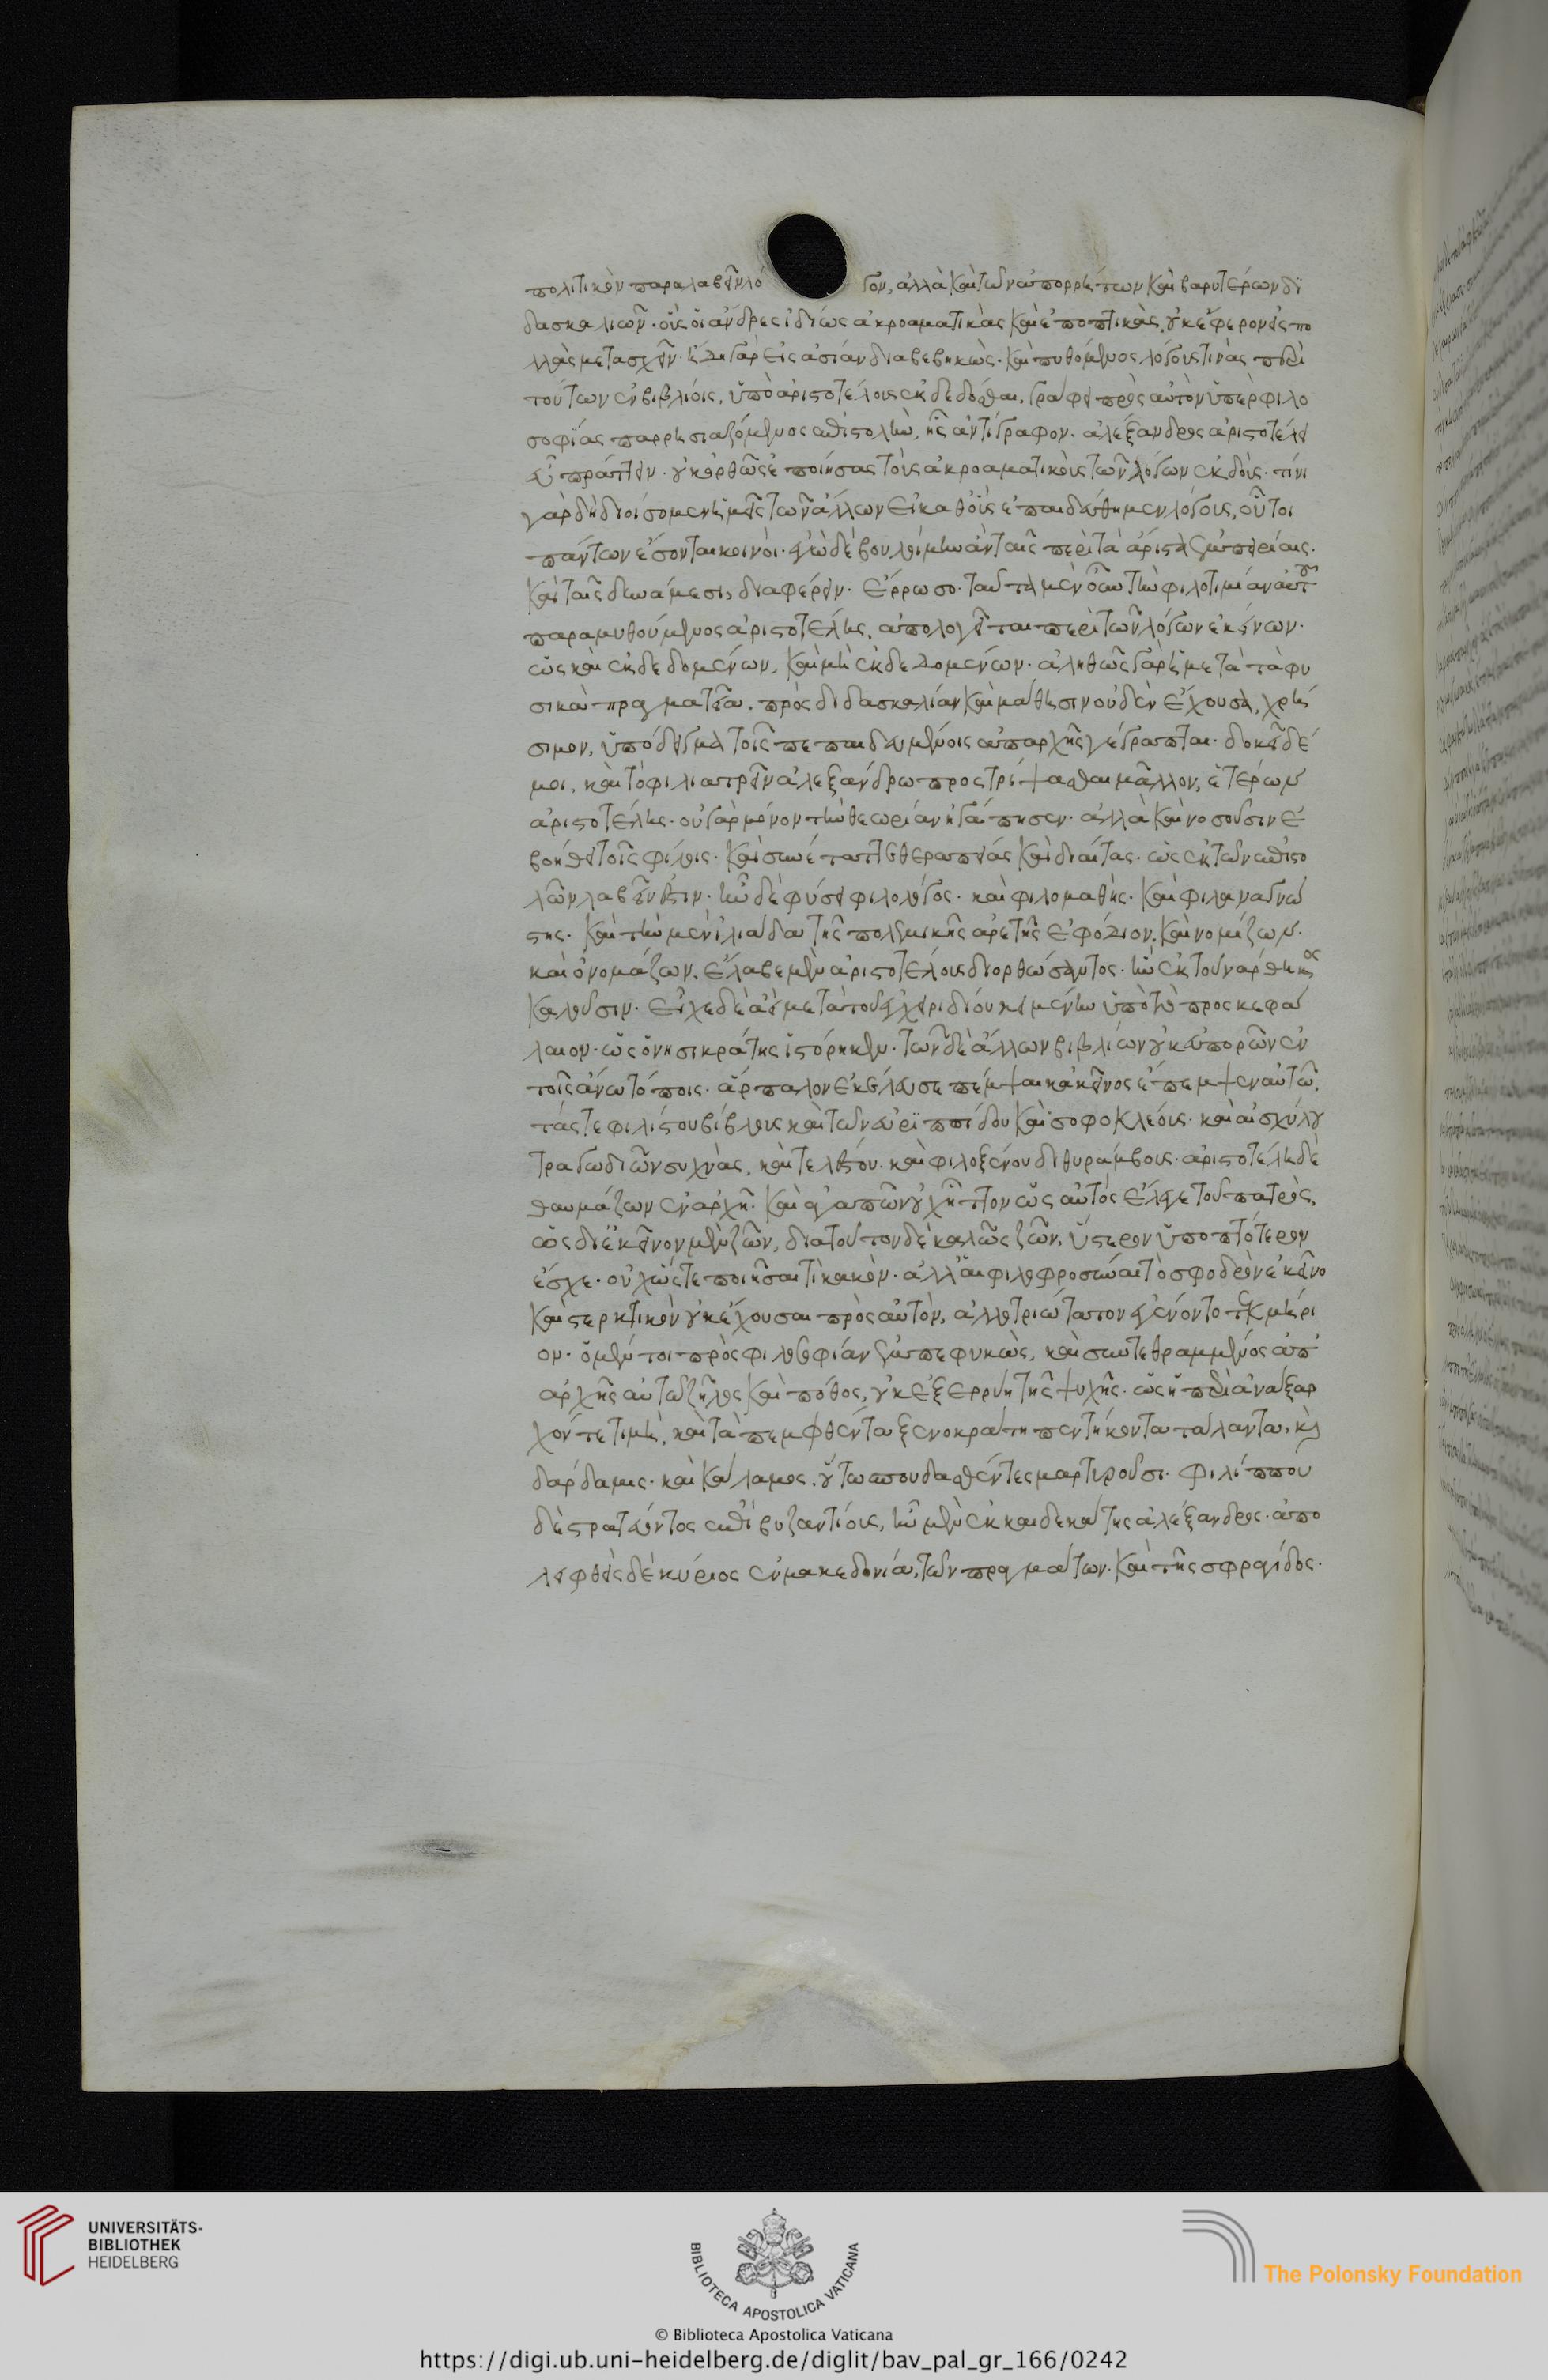 πολιτικὸν παραλαβεῖν λό γον, ἀλλὰ καὶ τῶν ἀπορρήτων καὶ βαρυτέρων δι
δασκαλιῶν. οὓς οἱ ἄνδρες ἰδίως ἀκροαματικὰς καὶ ἐποπτικὰς, οὐκ ἔφερον εἰς πο
λλοὺς μετασχεῖν. ἤδη γὰρ εἰς ἀσίαν διαβεβηκὼς. καὶ πυθόμενος λόγους τινὰς περὶ
τούτων ἐν βιβλίοις, ὑπὸ ἀριστοτέλους ἐκδεδόσθαι, γράφει πρὸς αὐτὸν ὑπὲρ φιλο
σοφίας παρρησιαζόμενος ἐπιστολὴν, ἧς ἀντίγραφον. ἀλέξανδρος ἀριστοτέλει
εὖ πράττειν. οὐκ ὀρθῶς ἐποίησας τοὺς ἀκροαματικοὺς τῶν λόγων ἐκδούς. τίνι
γὰρ δὴ διοίσομεν ἡμεῖς τῶν ἄλλων εἰ καθ' οὓς ἐπαιδεύθημεν λόγους, οὗτοι
πάντων ἔσονται κοινοί. ἐγὼ δὲ βουλοίμην ἂν ταῖς περὶ τὰ ἄριστα ἐμπειρίαις.
καὶ ταῖς δυνάμεσι, διαφέρειν. ἔρρωσο. ταύτην μὲν οὖν τὴν φιλοτιμίαν αὐτοῦ
παραμυθούμενος ἀριστοτέλης, ἀπολογεῖται περὶ τῶν λόγων ἐκείνων.
ὡς καὶ ἐκδεδομένων, καὶ μὴ ἐκδεδομένων. ἀληθῶς γὰρ ἡ μετὰ τὰ φυ
σικὰ πραγματεία. πρὸς διδασκαλίαν καὶ μάθησιν οὐδὲν ἔχουσα, χρή
σιμον, ὑπόδειγμα τοῖς πεπαιδευμένοις ἀπαρχῆς γέγραπται. δοκεῖ δέ
μοι, καὶ τὸ φιλιατρεῖν ἀλεξάνδρω προστρίψασθαι μᾶλλον, ἑτέρων
ἀριστοτέλης. οὐ γὰρ μόνον τὴν θεωρίαν ἠγάπησεν. ἀλλὰ καὶ νοσοῦσιν ἐ
βοήθει τοῖς φίλοις. καὶ συνέταττε θεραπείας καὶ διαίτας. ὡς ἐκ τῶν ἐπιστο
λῶν λαβεῖν ἔστιν. ἦν δὲ φύσει φιλόλογος. καὶ φιλομαθὴς. καὶ φιλαναγνώ
στης. καὶ τὴν μὲν ἰλιάδα τῆς πολεμικῆς ἀρετῆς ἐφόδιον. καὶ νομίζων.
καὶ ὀνομάζων. ἔλαβε μὲν ἀριστοτέλους διορθώσαντος. ἣν ἐκ τοῦ νάρθηκος
καλοῦσιν. εἶχε δὲ ἀεὶ μετὰ τοῦ ἐγχειριδίου κειμένην ὑπὸ τὸ προσκεφά
λαιον. ὡς ὀνησικράτης ἱστόρηκεν. τῶν δὲ ἄλλων βιβλίων οὐκ εὐπορῶν ἐν
τοῖς ἄνω τόποις. ἅρπαλον ἐκέλευσε πέμψαι κἀκεῖνος ἔπεμψεν αὐτῶ.
τάς τε φιλίστου βίβλους καὶ τῶν εὐριππίδου καὶ σοφοκλέους. καὶ αἰσχύλου
τραγωδιῶν συχνὰς, καὶ τελέστου. καὶ φιλοξένου διθυράμβους. ἀριστοτέλη δὲ
θαυμάζων ἐν ἀρχῆ. καὶ ἀγαπῶν οὐχ ἧττον ὡς αὐτὸς ἔλεγε τοῦ πατρὸς.
ὡς δι' ἐκεῖνον μὲν ζῶν, δια τοῦτον δὲ καλῶς ζῶν, ὕστερον ὑποπτότερον
ἔσχε. οὐχ ὥστε ποιῆσαι τὶ κακόν. ἀλλ' αἱ φιλοφροσύναι τὸ σφοδρὸν ἐκεῖνο
καὶ στερκτικὸν οὐκ ἔχουσαι πρὸς αὐτὸν, ἀλλοτριώτατον ἐγένοντο τεκμήρι
ον. ὁ μέν τοι πρὸς φιλοσοφίαν ἐμπεφυκὼς, καὶ συντεθραμμένος ἀπ'
ἀρχῆς αὐτῶ ζῆλος καὶ πόθος, οὐκ ἐξερρύη τῆς ψυχῆς. ὡς ἡ περὶ ἀνάξαρ
χόν τε τιμὴ, καὶ τὰ πεμφθέντα ξενοκράτη πεντήκοντα τάλαντα, καὶ
δάρδαμις. καὶ κάλαμος. οὕτω σπουδασθέντες μαρτυροῦσι. φιλίππου
δὲ στρατεύοντος ἐπὶ βυζαντίους, ἦν μὲν ἑκκαιδεκάτης ἀλέξανδρος. ἀπο
λειφθεὶς δὲ κύριος ἐν μακεδονία, τῶν πραγμάτων. καὶ τῆς σφραγίδος.
UNIVERSITÄTS-
BIBLIOTHEK
HEIDELBERG
BIBLIOTECA APOSTOLICA VATICANA
© Biblioteca Apostolica Vaticana
The Polonsky Foundation
https://digi.ub.uni-heidelberg.de/diglit/bav_pal_gr_166/0242